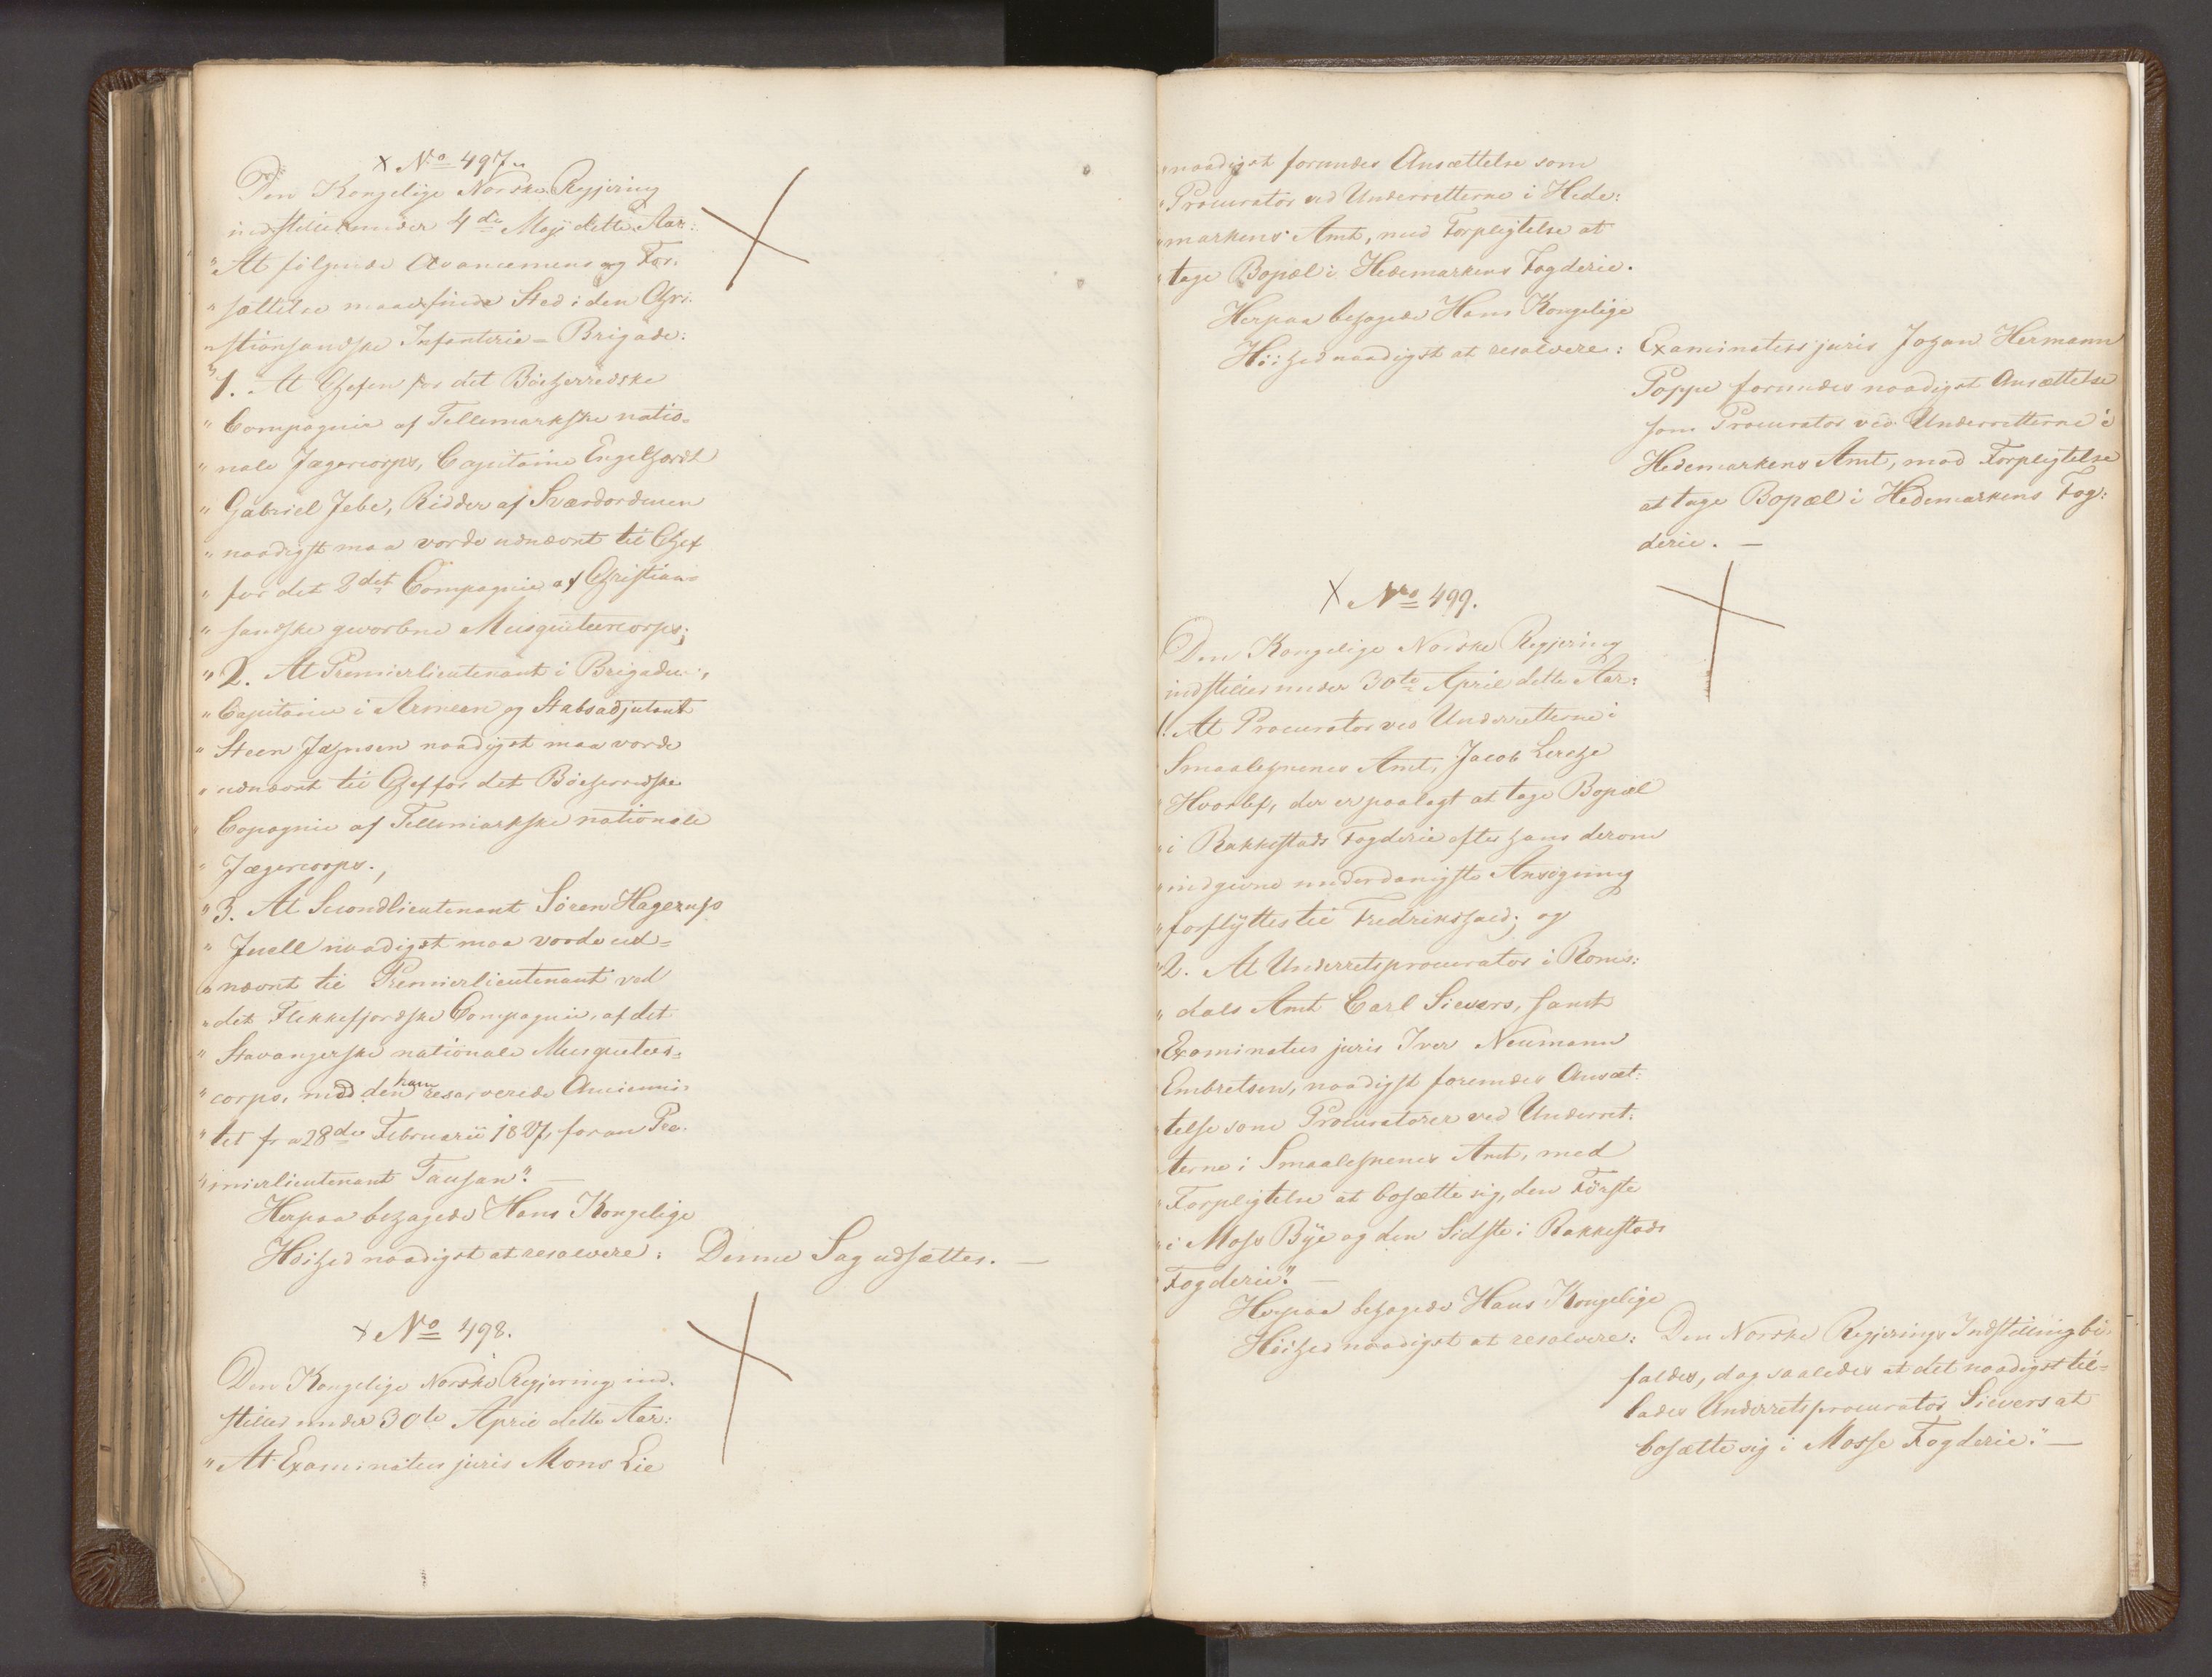 x No 497.
Den Kongelige Norske Regjering
indstiller under 4de Maji dette Aar:
"At følgende Avancemens og For-
"sættelse maae finde Sted i den Chri-
"stiansandske Infanterie-Brigade:
"1. At Chefen for det Böeherredske
"Compagnie af Tellemarkske natio-
"nale Jægercorps, Capitaine Engelhardt
"Gabriel Jebe, Ridder af Sværdordenen
"naadigst maa vorde udnævnt til Chef
"for det 2det Compagnie af Christian-
"sandske geworbne Musqueteercorps;
"2. At Premierlieutenant i Brigaden,
"Capitaine i Armeen og Stabsadjutant
"Steen Jahnsen naadigst maa vorde
"udnævnt til Chef for det Böeherredske
"Copagnie af Tellemarkske nationale
"Jægercorps.,
"3. At Secondlieutenant Sören Hagerup
"Juell naadigst maa vorde ud-
"nævnt til Premierlieutenant ved
"det Flekkefjordske Compagnie, af det
"Stavangerske nationale Musqueteer-
"corps, med den ham reserverede Ancienni-
"tet fra 28de Februarii 1827, foran Pre-
"mierlieutenant Tausan". —
Herpaa behagede Hans Kongelige
Höihed naadigst at resolvere: Denne Sag udsættes. —
x No 498.
Den Kongelige Norske Regjering ind-
stiller under 30te April dette Aar:
"At Examinatus juris Mons Lie
"naadigst forundes Ansættelse som
"Procurator ved Underretterne i Hede:
"markens Amt, med Forpligtelse at
"tage Bopæl i Hedemarkens Fogderie.
Herpaa behagede Hans Kongelige
Höihed naadigst at resolvere: Examinatus juris Johan Hermann
Poppe forundes naadigst Ansættelse
som Procurator ved Underretterne i
Hedemarkens Amt, mod Forpligtelse
at tage Bopæl i Hedemarkens Fog:
derie. —
x No 499.
Den Kongelige Norske Regjering
indstiller under 30te April dette Aar:
1. At Procurator ved Underretterne i
Smaalehnenes Amt, Jacob Lerche
"Hvorlef, der er paalagt at tage Bopæl
"i Rakkestads Fogderie efter hans derom
"indgivne underdanigste Ansögning
"forflyttes til Fredrikshald; og
"2. At Underretsprocurator i Roms:
"dals Amt Carl Sievers, samt
"Examinatus juris Iver Neumann
Embretsen, naadigst forundes Ansæt-
"telse som Procuratorer ved Underret-
"terne i Smaalehnenes Amt, med
"Forpligtelse at bosætte sig, den Förste
"i Moss Bye og den Sidste i Rakkestads
"Fogderie". —
Herpaa behagede Hans Kongelige
Höihed naadigst at resolvere: Den Norske Regjerings Indstilling bi-
faldes, dog saaledes at det naadigst til-
lades Underretsprocurator Sievers at
bosætte sig i Mosse Fogderie." —